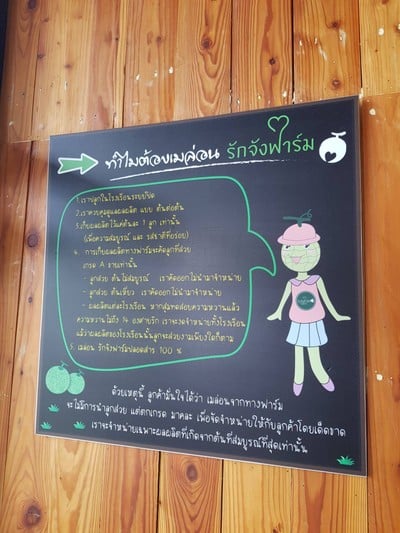 ทำไมต้องเมล่อน รักจังฟาร์ม
1. เราปลูกในโรงเรือนระบบปิด
2. เราควบคุมดูแลผลผลิต แบบ ต้นต่อต้น
3. เก็บผลผลิตไว้แค่ต้นละ 1 ลูก เท่านั้น
(เพื่อความสมบูรณ์ และ รสชาติที่อร่อย)
4. การเก็บผลผลิตทางฟาร์มจะคัดลูกที่สวย
เกรด A ขายเท่านั้น
- ลูกสวย ต้นไม่สมบูรณ์ เราคัดออกไม่นำมาจำหน่าย
- ลูกสวย ต้นเหี่ยว เราคัดออกไม่นำมาจำหน่าย
- ผลผลิตแต่ละโรงเรือน หากสุ่มทดสอบความหวานแล้ว
ความหวานไม่ถึง 14 องศาบริก เราจะงดจำหน่ายทั้งโรงเรือน
แม้ว่าผลผลิตของโรงเรือนนั้นลูกจะสวยงามเพียงใดก็ตาม
5. เมล่อน รักจังฟาร์มปลอดสาร 100 %
ด้วยเหตุนี้ ลูกค้ามั่นใจได้ว่า เมล่อนจากทางฟาร์ม
จะไม่มีการนำลูกสวย แต่ตกเกรด มาคละ เพื่อจัดจำหน่ายให้กับลูกค้าโดยเด็ดขาด
เราจะจำหน่ายเฉพาะผลผลิตที่เกิดจากต้นที่สมบูรณ์ที่สุดเท่านั้น